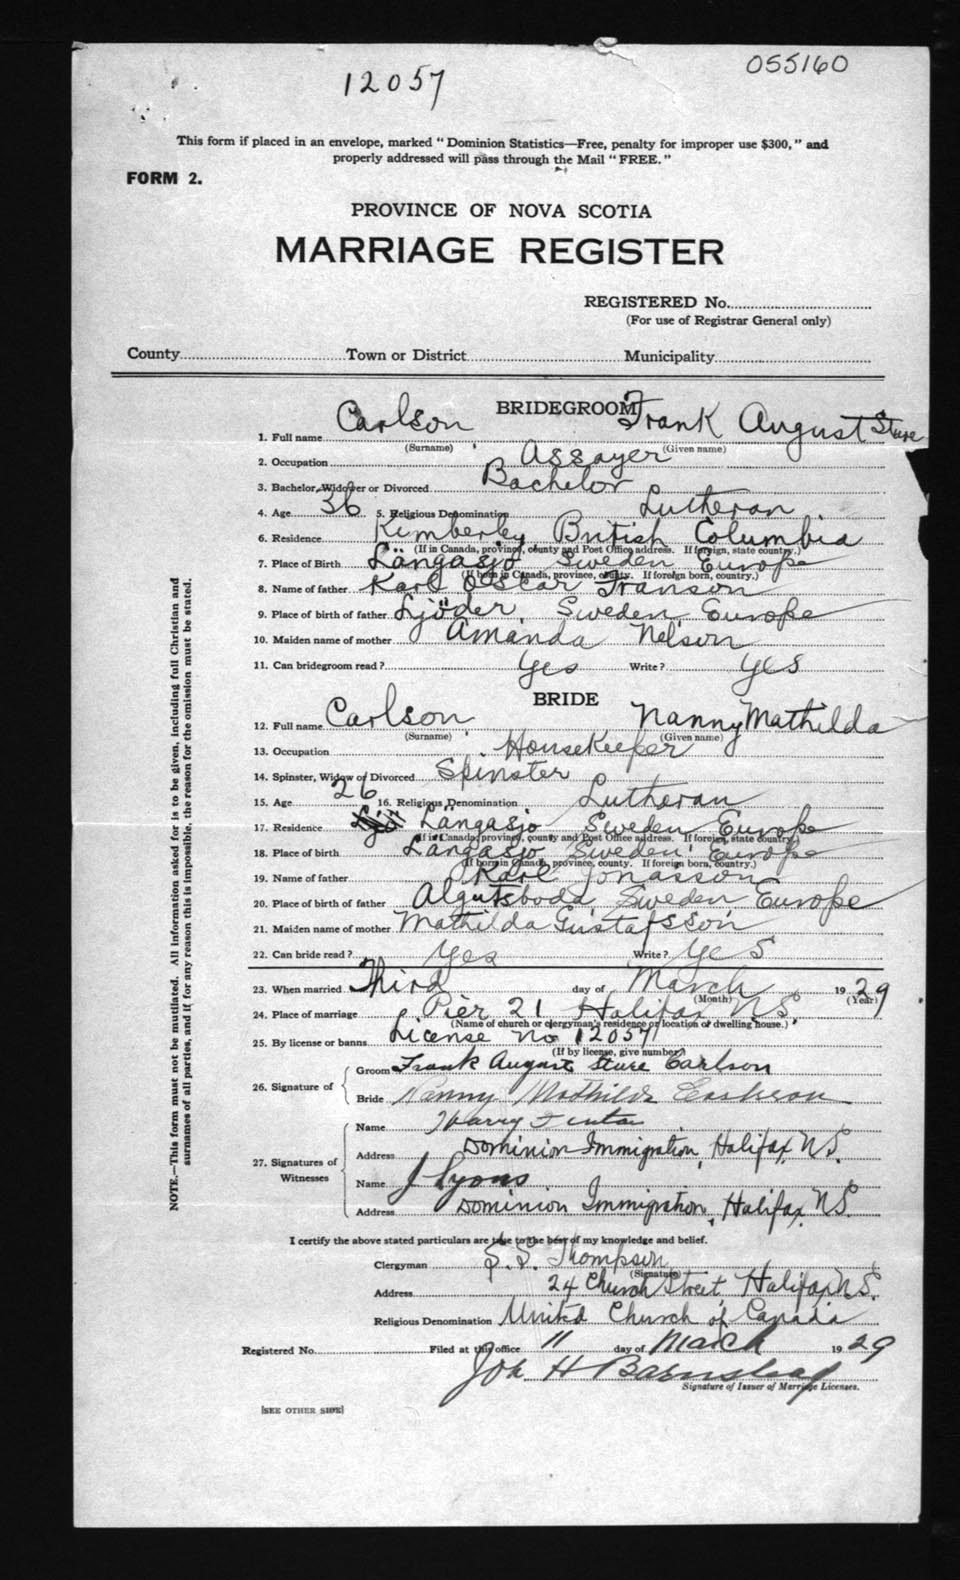 055160
12057
This form if placed in an envelope, marked "Dominion Statistics—Free, penalty for improper use $300," and
properly addressed will pass through the Mail "FREE."
FORM 2.
PROVINCE OF NOVA SCOTIA
MARRIAGE REGISTER
REGISTERED No.
(For use of Registrar General only)
County Town or District Municipality
BRIDEGROOM
1. Full name Carlson Frank August Sture
(Surname) (Given name)
2. Occupation Assayer
3. Bachelor, Widower or Divorced Bachelor
4. Age 36 5. Religious Denomination Lutheran
6. Residence Kimberley British Columbia
(If in Canada, province, county and Post Office address. If foreign, state country.)
7. Place of Birth Längasjö Sweden Europe
(If born in Canada, province, county. If foreign born, country.)
8. Name of father Karl Oscar Franson
9. Place of birth of father Ljöder, Sweden Europe
10. Maiden name of mother Amanda Nelson
11. Can bridegroom read? Yes Write? Yes
BRIDE
12. Full name Carlson Nanny Mathilda
(Surname) (Given name)
13. Occupation Housekeeper
14. Spinster, Widow or Divorced Spinster
15. Age 26 16. Religious Denomination Lutheran
17. Residence Längasjo Sweden Europe
(If in Canada, province, county and Post Office address. If foreign, state country.)
18. Place of birth Längasjö Sweden Europe
(If born in Canada, province, county. If foreign born, country.)
19. Name of father Karl Jonasson
20. Place of birth of father Algutsboda Sweden Europe
21. Maiden name of mother Mathilda Gustafsson
22. Can bride read? Yes Write? Yes
23. When married Third day of March 1929
(Month) (Year)
24. Place of marriage Pier 21 Halifax N.S.
(Name of church or clergyman's residence or location of dwelling house.)
25. By license or banns License No 12057
(If by license, give number)
26. Signature of Groom Frank August Sture Carlson
Bride Nanny Mathilda Carlsson
27. Signatures of Witnesses Name Harry Fenton
Address Dominion Immigration, Halifax, N.S.
Name J Lyons
Address Dominion Immigration, Halifax, N.S.
I certify the above stated particulars are true to the best of my knowledge and belief.
Clergyman Thompson
(Signature)
Address 24 Church Street, Halifax N.S.
Religious Denomination United Church of Canada
Registered No. Filed at this office 11 day of March 1929
Jos H Barnstead
Signature of Issuer of Marriage Licenses.
[SEE OTHER SIDE]
NOTE.—This form must not be mutilated. All information asked for is to be given, including full Christian and
surnames of all parties, and if for any reason this is impossible, the reason for the omission must be stated.